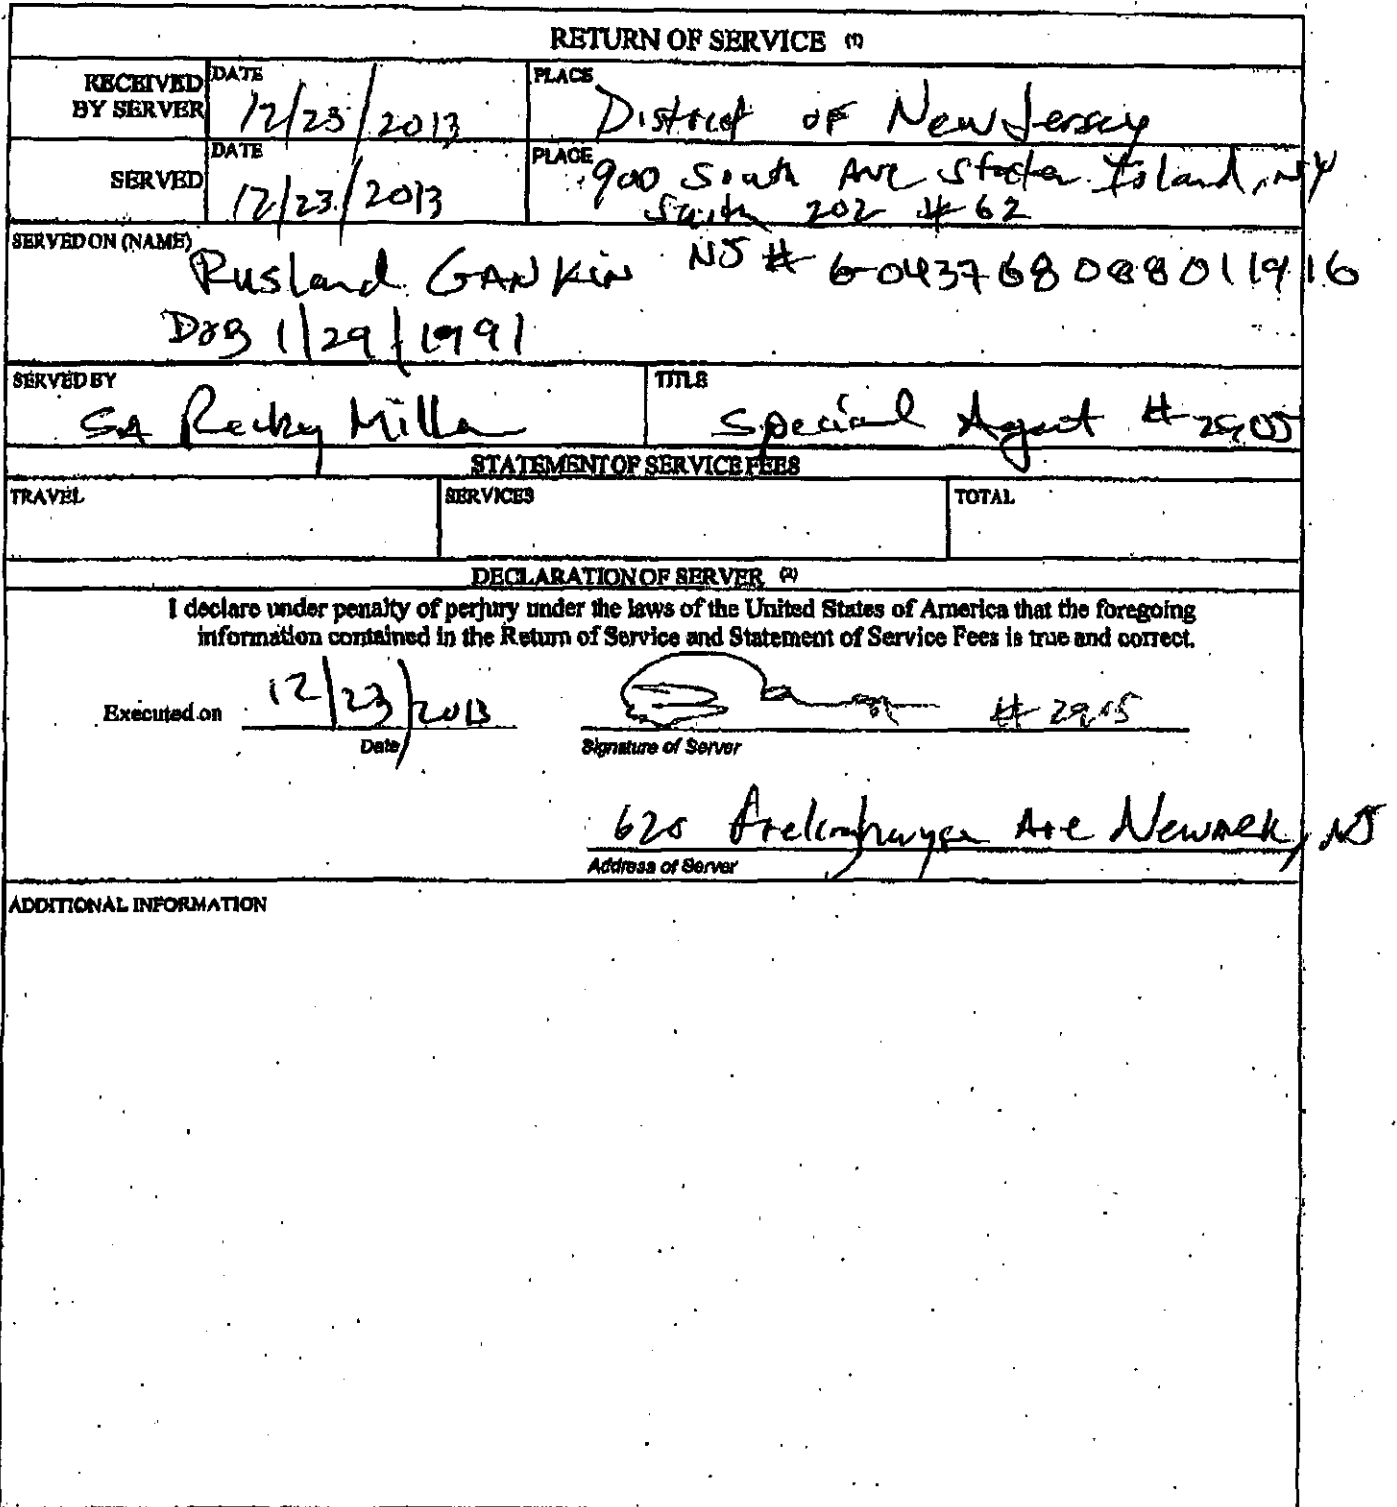 RETURN OF SERVICE (1)
RECEIVED BY SERVER DATE 12/23/2013 PLACE District of New Jersey
SERVED DATE 12/23/2013 PLACE 900 South Ave Staten Island, NY
Suite 202 #62
SERVED ON (NAME) Rusland GANKIN NJ #
DOB 1/29/1991
SERVED BY SA Miller TITLE Special Agent #
STATEMENT OF SERVICE FEES
TRAVEL SERVICES TOTAL
DECLARATION OF SERVER (2)
I declare under penalty of perjury under the laws of the United States of America that the foregoing
information contained in the Return of Service and Statement of Service Fees is true and correct.
Executed on 12/23/2013 # 2905
Date Signature of Server
620 Frelinghuysen Ave Newark, NJ
Address of Server
ADDITIONAL INFORMATION